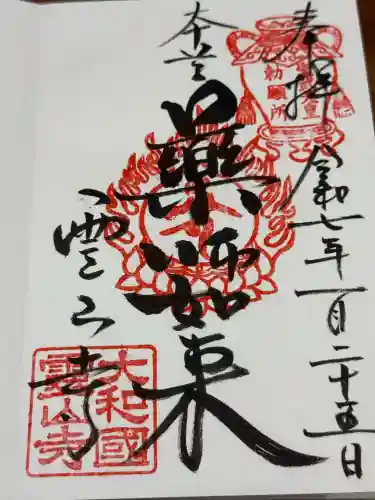 奉拝
令和七年一月二十五日
本尊
薬師如来
霊山寺
勅願所
大和國
霊山寺